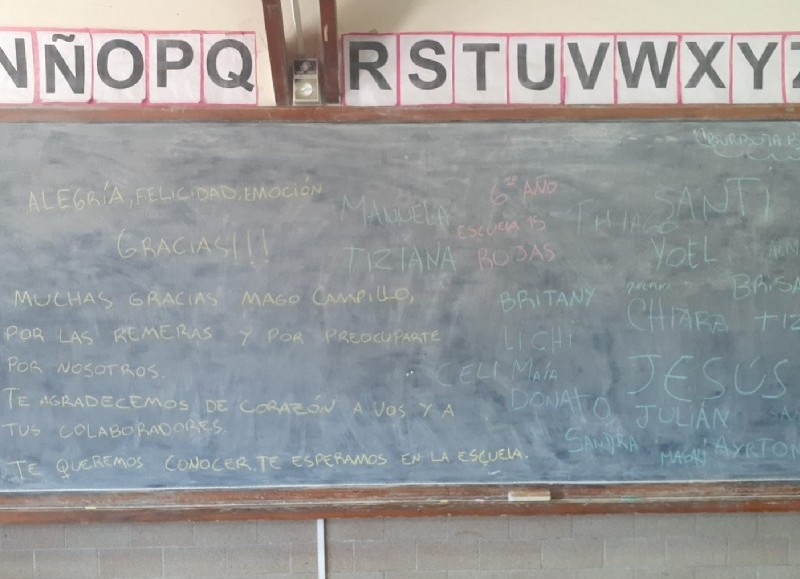 N Ñ O P Q R S T U V W X Y Z
ALEGRÍA, FELICIDAD, EMOCIÓN
GRACIAS!!!
MUCHAS GRACIAS MAGO CAMPILLO,
POR LAS REMERAS Y POR PREOCUPARTE
POR NOSOTROS.
TE AGRADECEMOS DE CORAZÓN A VOS Y A
TUS COLABORADORES.
TE QUEREMOS CONOCER. TE ESPERAMOS EN LA ESCUELA.
MANUELA
TIZIANA
6to AÑO
ESCUELA 15
ROJAS
THIAGO
SANTI
YOEL
BRITANY
LICHI
CELI
MAÍA
DONATO
CHIARA
BRISA
TIZ
JESÚS
JULIÁN
SANDRA
MAGALI
AYRTON